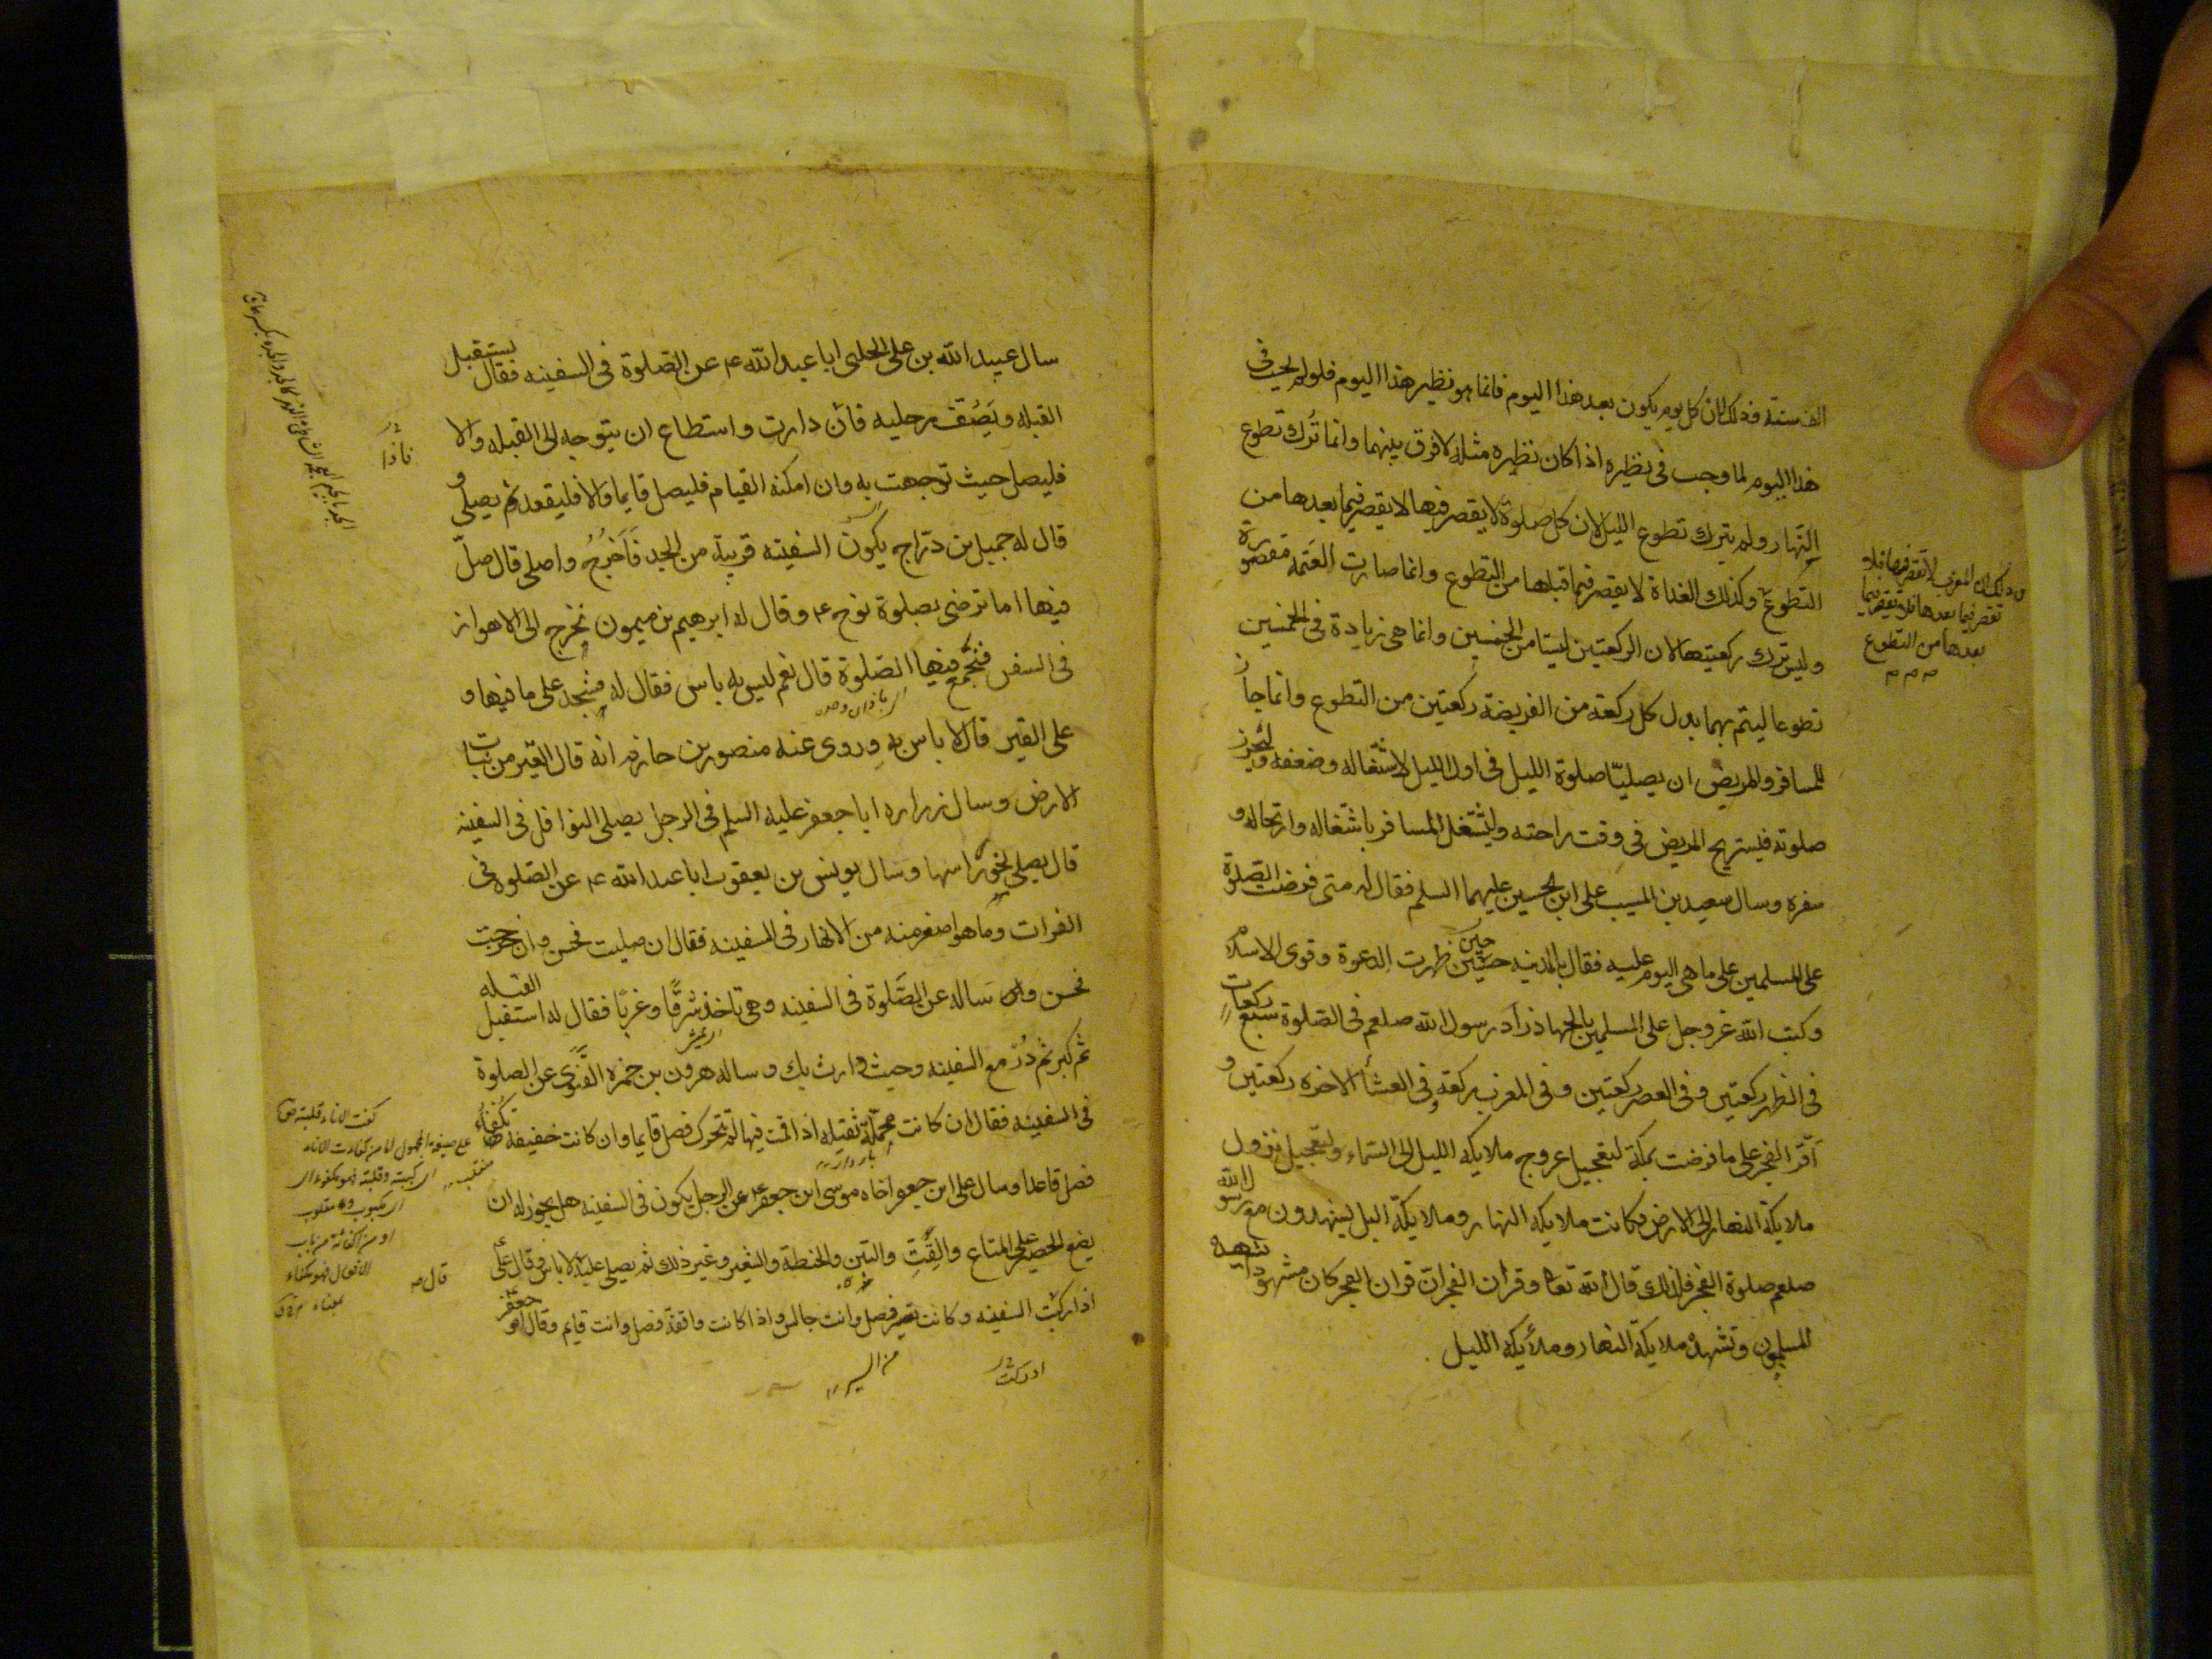 الف سنة فذلك لان كل يوم يكون بعد هذا اليوم فانما هو نظير هذا اليوم فلو لم يجب فى
هذا اليوم لما وجب فى نظيره اذا كان نظيره مثله لا فرق بينهما وانما تُرك تطوع
النّهار ولم يترك تطوع الليل لان كل صلوة لا يقصر فيها لا يقصر فيما بعدها من
التطوع وكذلك الغداة لا يقصر فيما قبلها من التطوع وانما صارت العَتمة مقصورة
وليس تترك ركعتيها لان الركعتين ليستا من الخمسين وانما هى زيادة فى الخمسين
تطوعا ليتم بهما بدل كل ركعة من الفريضة ركعتين من التطوع وانما جاز
للمسافر والمريض ان يصليّا صلوة الليل فى اول الليل لاشتغاله وضعفه وليحرز
صلوته فيستريح المريض فى وقت راحته وليشتغل المسافر باشتغاله وارتحاله و
سفره وسال سعيد بن المسيب على ابن الحسين عليهما السلم فقال له متى فرضت الصلوة
على المسلمين على ما هى اليوم عليه فقال بالمدينه حين ظهرت الدعوة وقوى الاسلام
وكتب الله عز وجل على المسلمين الجهاد زاد رسول الله صلعم فى الصّلوة سبع ركعات
فى الظهر ركعتين وفى العصر ركعتين وفى المغرب ركعة وفى العشاء الاخره ركعتين و
اقرّ الفجر على ما فرضت بمكة لتعجيل عروج ملايكة الليل الى السّماء ولتعجيل نزول
ملايكة النهار الى الارض فكانت ملايكه النهار وملايكة اليل يشهدون مع رسول الله
صلعم صلوة الفجر فلذلك قال الله تعا وقران الفجر ان قران الفجر كان مشهودا يشهده
المسلمون وتشهده ملايكة النهار وملائكة الليل
وذلك ان المغرب لا يقصر فيها فلا
تقصر فيما بعدها
بعدها من التطوع
سال عبيد الله بن على الحلبى ابا عبد الله ع عن الصّلوة فى السفينه فقال يستقبل
القبله ويَصُفّ رجليه فان دارت واستطاع ان يتوجه الى القبله والا
فليصل حيث توجهت به وان امكنه القيام فليصل قايما والا فليقعد ثم يصلى و
قال له جميل بن درّاج يكون السفينه قريبة من الجد فَاَخرُجُ واصلى قال صلّ
فيها اما ترضى بصلوة نوح ع وقال له ابرهيم بن ميمون نخرج الى الاهواز
فى السفن فنُجمّع فيها الصّلوة قال نعم ليس به باس فقال له فنسجد على ما فيها و
على القير قال لا باس به وروى عنه منصور بن حازم انه قال القير من نبات
الارض وسال زراره ابا جعفر عليه السلم فى الرجل يصلى النوافل فى السفينه
قال يصلى نحو راسها وسال يونس بن يعقوب ابا عبد الله ع عن الصّلوه فى
الفرات وما هو اصغر منه من الانهار فى السفينه فقال ان صليت فحسن وان خرجت
فحسن وساله عن الصّلوة فى السفينه وهى تاخذ شرقًا وغربًا فقال له استقبل القبله
ثم كبر ثم دُر مع السفينه وحيث دارت بك وساله هرون بن حمزه الغَنَوى عن الصلوة
فى السفينه فقال ان كانت محمّلة ثقيله اذا قمت فيها لم تتحرك فصل قايما وان كانت خفيفه تُكفأ
فصل قاعدا وسال على ابن جعفر اخاه موسى ابن جعفر ع عن الرجل يكون فى السفينه هل يجوز له ان
يضع الحصير على المتاع والقَتِّ والتبن والحنطة والشعير وغير ذلك ثم يصلى عليه قال لا باس وقال على ع
اذا ركبت السفينه وكانت تسير فصل وانت جالس واذا كانت واقفة فصل وانت قايم وقال ابو جعفر
فاذا
قال
من السير